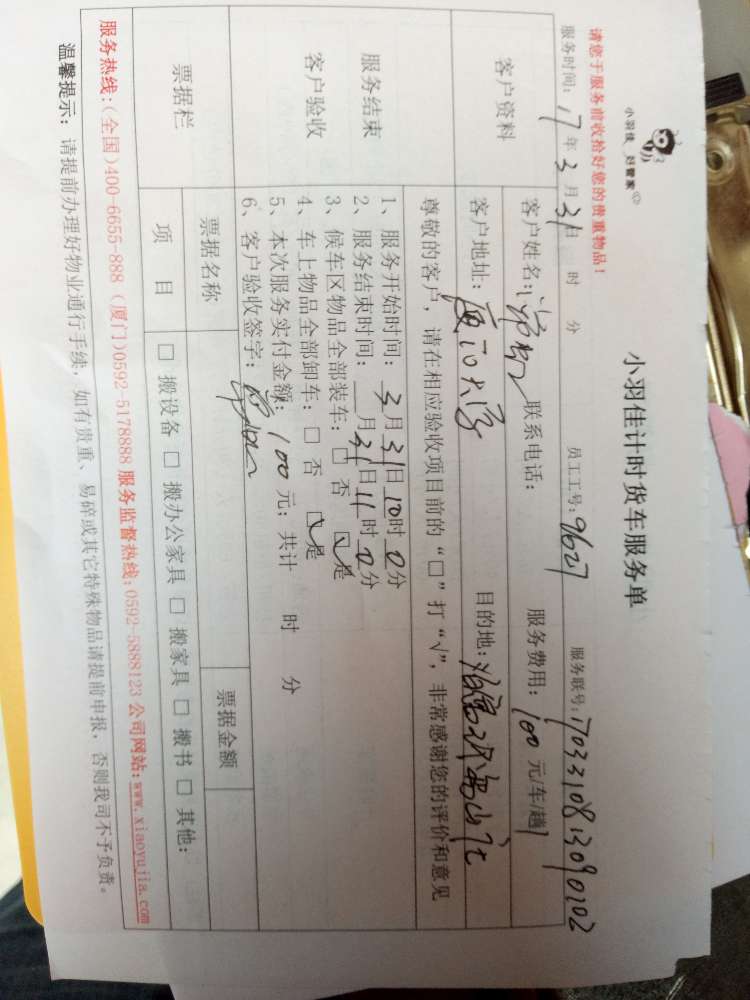 小羽佳 好管家
小羽佳计时货车服务单
请您于服务前收拾好您的贵重物品！
服务时间：17年3月31日 时 分 员工工号：9627 服务联号：1703310813090102
客户资料
客户姓名： 联系电话： 服务费用：100元/车/趟
客户地址：厦门大学 目的地：
尊敬的客户，请在相应验收项目前的“□”打“√”，非常感谢您的评价和意见
服务结束
客户验收
1、服务开始时间：3月31日10时0分
2、服务结束时间：__月31日11时0分
3、候车区物品全部装车：□ 否 ☑是
4、车上物品全部卸车：□ 否 ☑是
5、本次服务实付金额：100元；共计 时 分
6、客户验收签字：
票据栏
票据名称 票据金额
项 目 □ 搬设备 □ 搬办公家具 □ 搬家具 □ 搬书 □ 其他：
服务热线：(全国)400-6655-888 (厦门)0592-5178888 服务监督热线：0592-5888123 公司网站：www.xiaoyujia.com
温馨提示：请提前办理好物业通行手续，如有贵重、易碎或其它特殊物品请提前申报，否则我司不予负责。